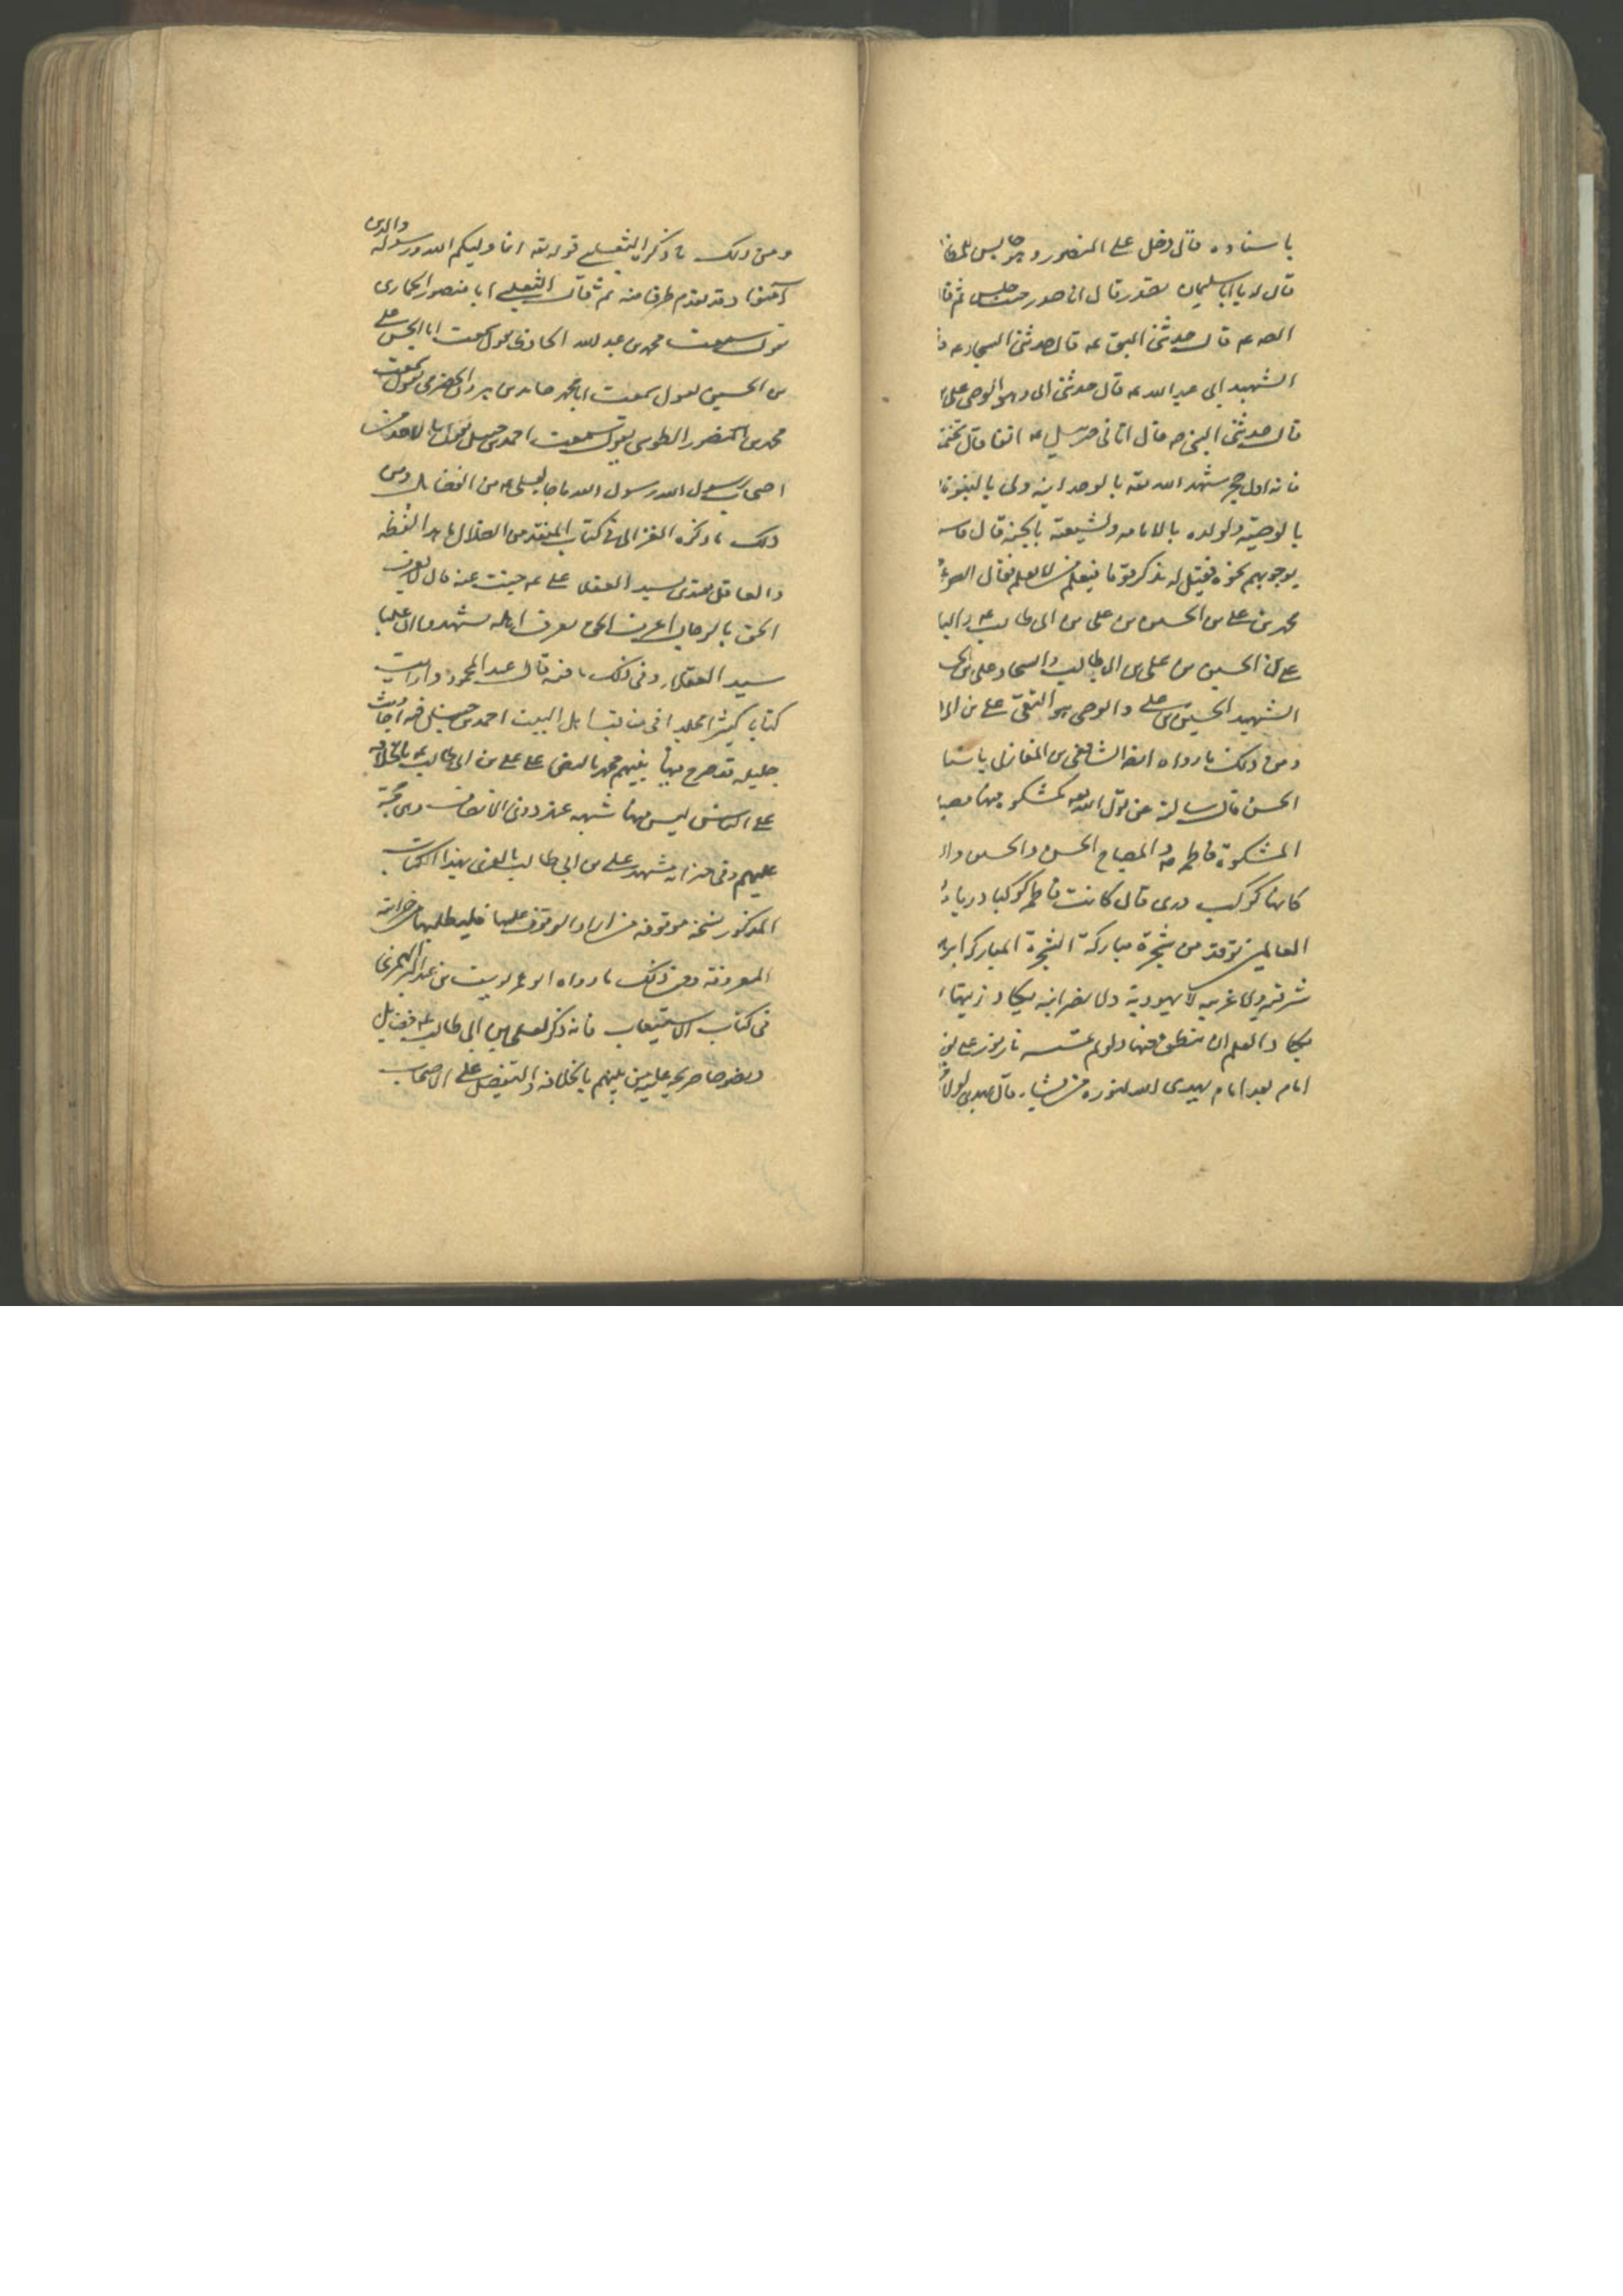 باسناده قال دخل على المنصور وهو جالس للمظا
قال له يا ابا سليمان تصدر قال انا صدر حيث جلس ثم قا
الصدع قال حدثنى الباقر ع قال حدثنى السجاد ع
الشهيد ابى عبد الله ع قال حدثنى ابى وهو الوصى على
قال حدثنى النبى ص قال اتانى جبرئيل ع انفا قال تختمو
فانه اول حجر شهد الله تعه بالوحدانيه ولى بالنبوة
بالوصيته ولولده بالامامه ولشيعته بالجنة قال فاستد
بوجوههم نحوه فقيل له تذكر قوما فيعلم من لا يعلم فقال الصدع
محمد بن على بن الحسين بن على بن ابى طالب ع والبا
على بن الحسين بن على بن ابى طالب والسجاد على بن الح
الشهيد الحسين بن على والوصى هو التقى على بن ابى
ومن ذلك ما رواه ايضا الشافعى بن المغازلى باسنا
الحسن قال سالته عن قول الله تعه كمشكوة فيها مصبا
المشكوة فاطمه ص والمصباح الحسن والحسين وال
كانها كوكب درى قال كانت فاطمه كوكبا دريا
العالمين توقد من شجرة مباركة الشجرة المباركه ابر
شرقيه ولا غربيه لا يهودية ولا نصرانيه يكاد زيتها
يكاد العلم ان ينطق منها ولو لم تمسسه نار نور على نو
امام بعد امام يهدى الله لنوره من يشاء قال يهدى لولا
ومن ذلك ما ذكره الثعلبى قوله تعه انما وليكم الله ورسوله والذين
آمنوا وقد تقدم طرفا منه ثم قال الثعلبى ابا منصور الحمارى
يقول سمعت محمد بن عبد الله الحافظ يقول سمعت ابا الحسن على
بن الحسين يقول سمعت ابا محمد حامد بن هرون الحضرمى يقول سمعت
محمد بن المنصور الطوسى يقول سمعت احمد بن حنبل يقول ما جا لاحد من
اصحاب رسول الله رسول الله ما جا لعلى ع من الفضائل ومن
ذلك ما ذكره الغزالى فى كتاب المنقذ من الضلال ما هذا لفظه
والعاقل يقتدى بسيد العقلا على ع حيث عنه قال لا يعرف
الحق بالرجال اعرف الحق تعرف اهله فشهد ان عليا
سيد العقلاء وفى ذلك ما فيه قال عبد المحمود ورايت
كتاب كبيرا مجلدا فى مناقب اهل البيت احمد بن حنبل فيه احاديث
جليله قد صرح فيها نبيهم محمد بالنص على على بن ابى طالب ع بالخلافه
على الناس ليس فيها شبهه عند ذوى الانصاف وهى حجة
عليهم وفى خزانه مشهد على بن ابى طالب بالغرى بهذا الكتاب
المذكور نسخه موقوفه من اراد الوقوف عليها فليطلبها من خزانته
المعروفة ومن ذلك ما رواه ابو عمر يوسف بن عبد البر النمرى
فى كتاب الاستيعاب فانه ذكر لعلى بن ابى طالب ع فضايل
ونصوصا صريحه عليه من نبيهم بالخلافه والتفضيل على الاصحاب